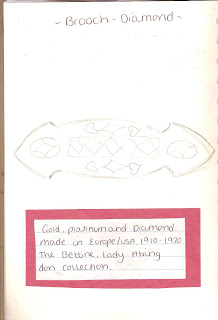 ~ Brooch - Diamond ~
Gold, platinum and Diamond
made in Europe/USA, 1910-1920
The Bettine, Lady Abing
don collection.